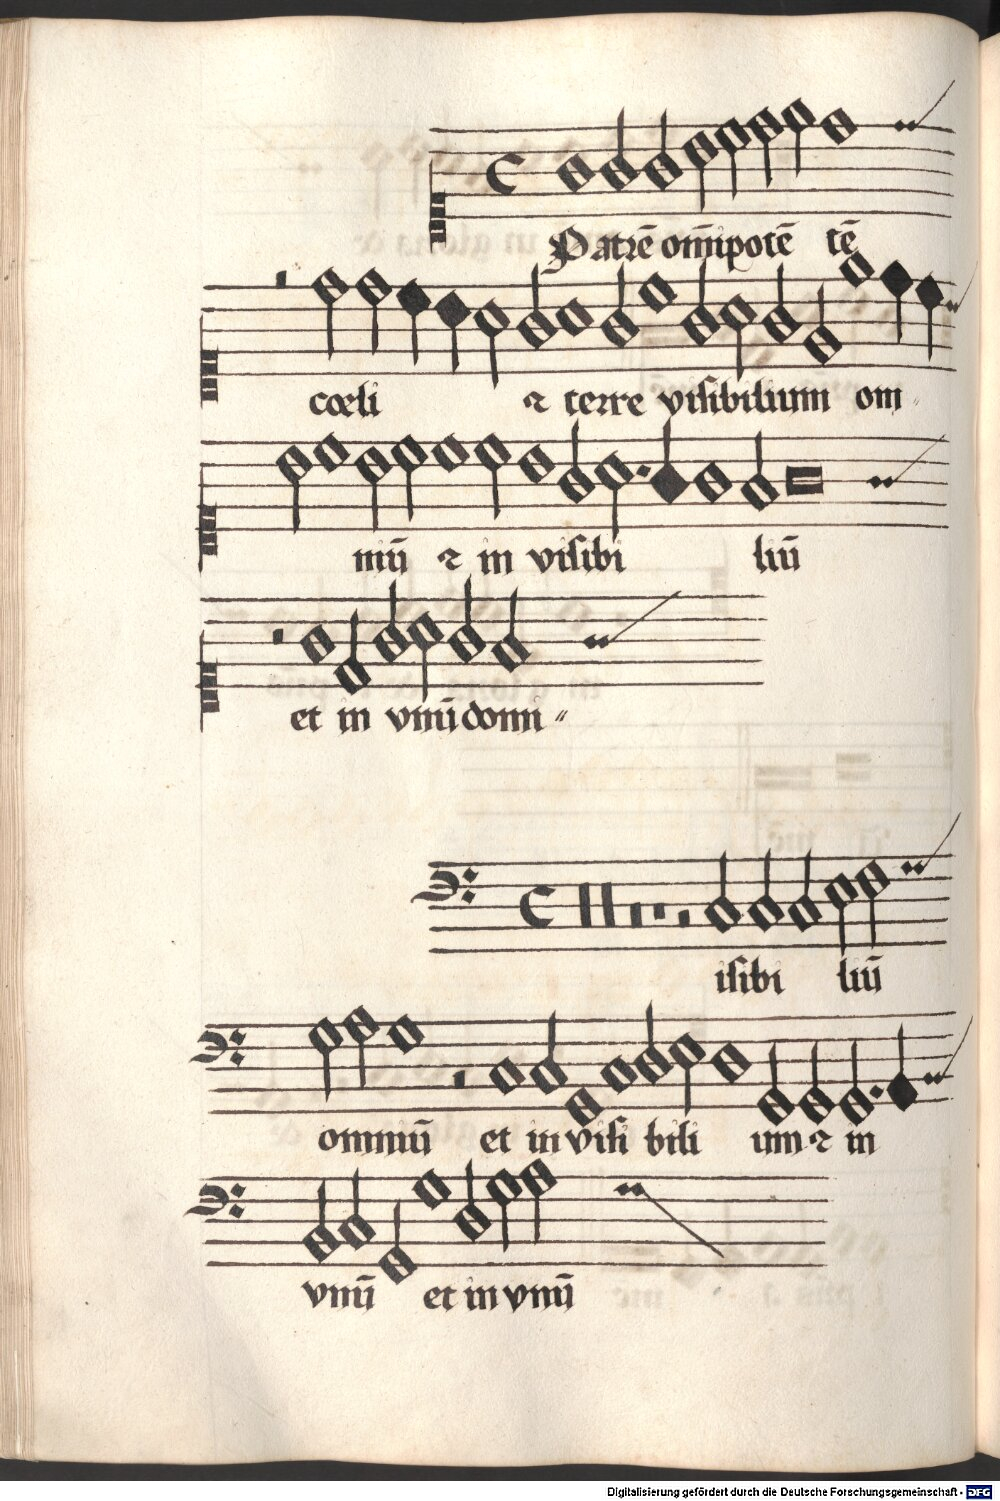 Patrē om̄ipotē tē
cœli ⁊ terre visibilium om
niū ⁊ in visibi liū
et in vnū domi
isibi liū
omniū et in visi bili um ⁊ in
vnū et in vnū
Digitalisierung gefördert durch die Deutsche Forschungsgemeinschaft - DFG